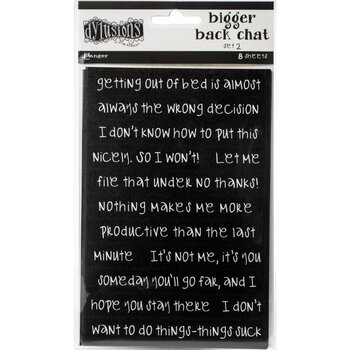 DYLUSIONS
bigger
back chat
set 2
Ranger
8 sheets
getting out of bed is almost
always the wrong decision
I don't know how to put this
nicely. so I won't! Let me
file that under no thanks!
Nothing makes me more
productive than the last
minute It's not me, it's you
someday you'll go far, and I
hope you stay there I don't
want to do things-things suck